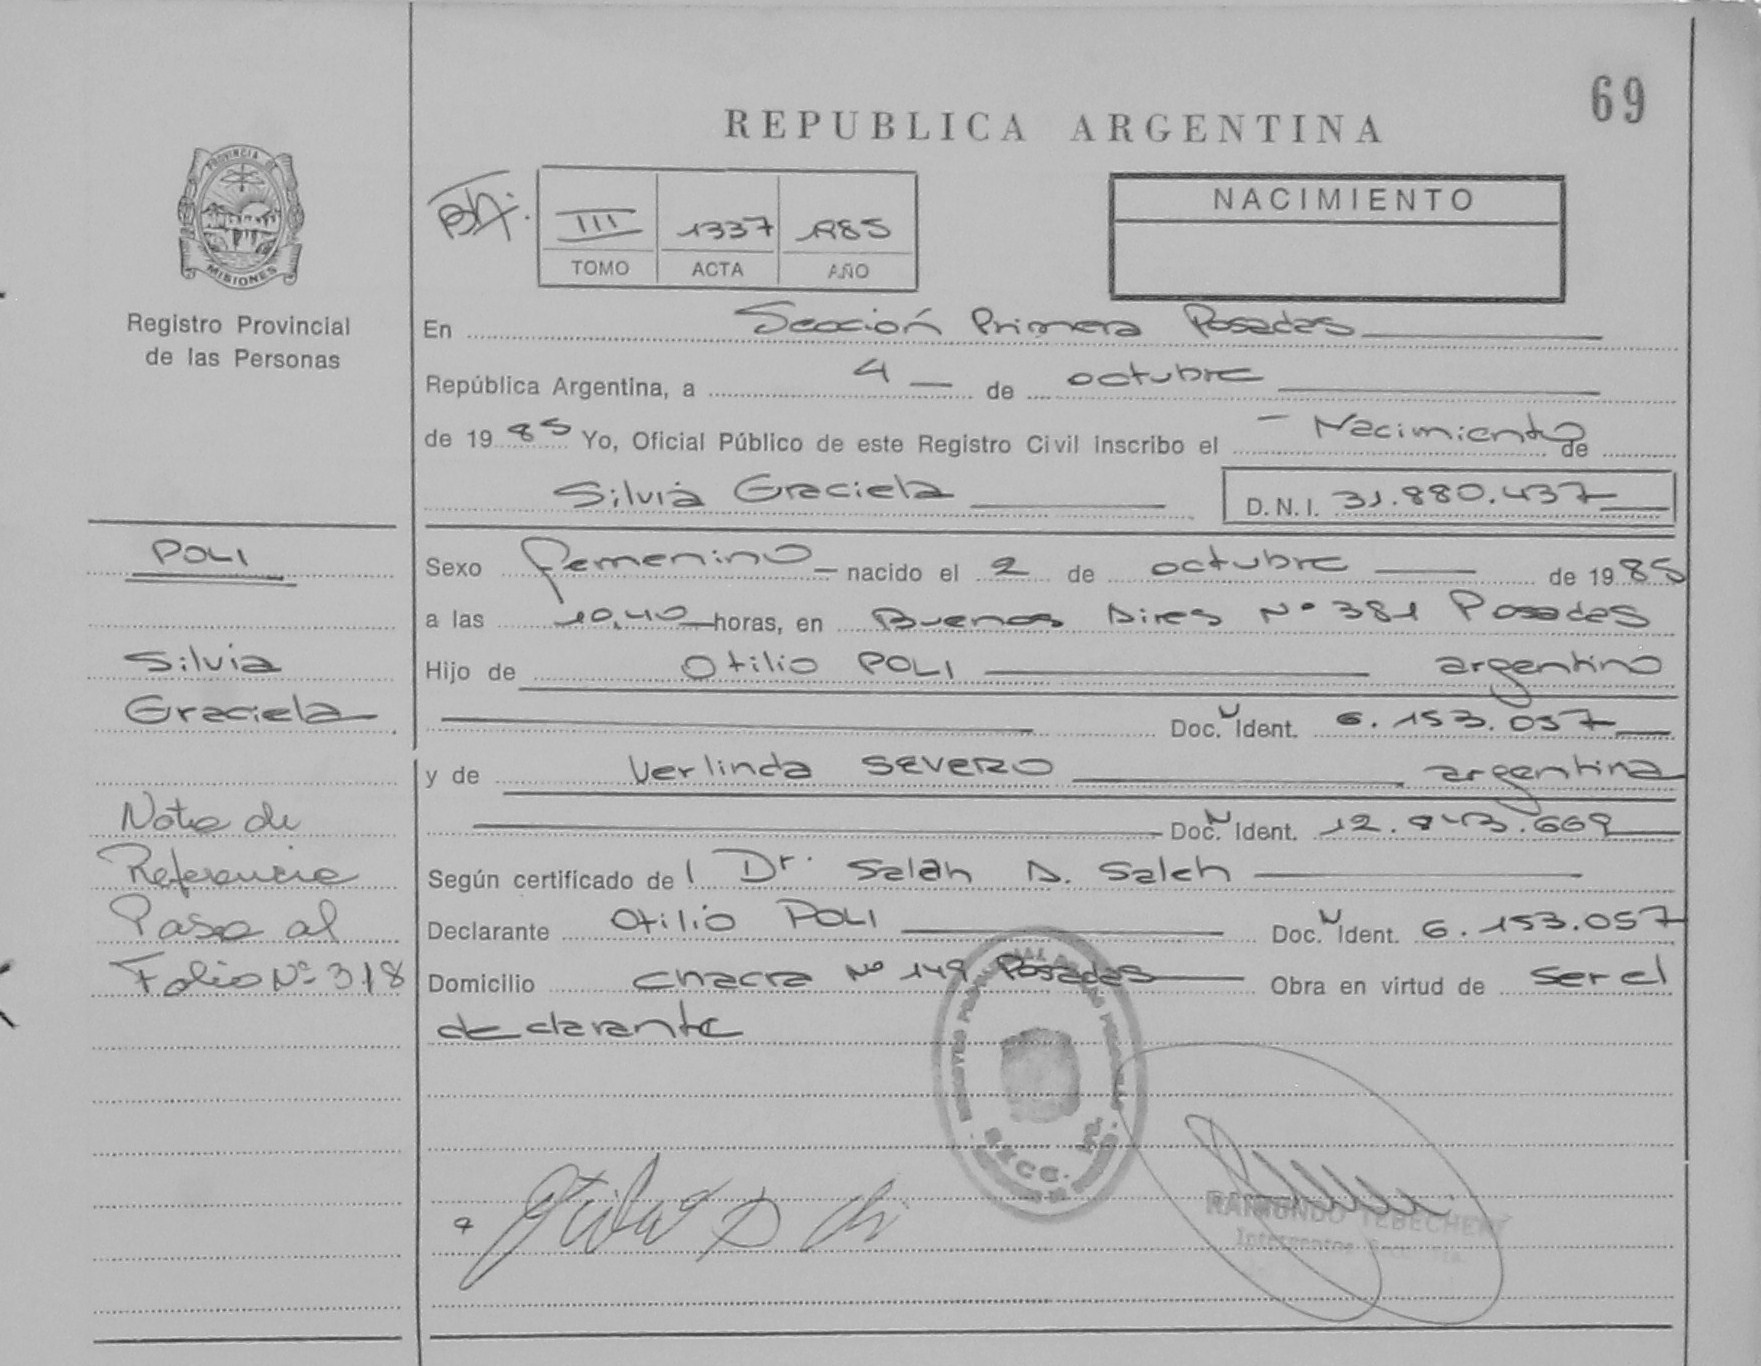 69
REPUBLICA ARGENTINA
PROVINCIA DE
MISIONES
Registro Provincial
de las Personas
III 1337 1985
TOMO ACTA AÑO
NACIMIENTO
En Sección Primera Posadas
República Argentina, a 4 de octubre
de 1985 Yo, Oficial Público de este Registro Civil inscribo el Nacimiento de
Silvia Graciela D.N.I. 31.880.437
POLI
Silvia
Graciela
Nota de
Referencia
Pasa al
Folio Nº 318
Sexo femenino nacido el 2 de octubre de 1985
a las 10,40 horas, en Buenos Aires Nº 381 Posadas
Hijo de Otilio POLI argentino
Doc. Ident. 6.153.057
y de Verlinda SEVERO argentina
Doc. Ident. 12.843.669
Según certificado de l Dr. Salah A. Saleh
Declarante Otilio POLI Doc. Ident. 6.153.057
Domicilio Chacra Nº 149 Posadas Obra en virtud de ser el
declarante
RAIMUNDO TEBECHERY